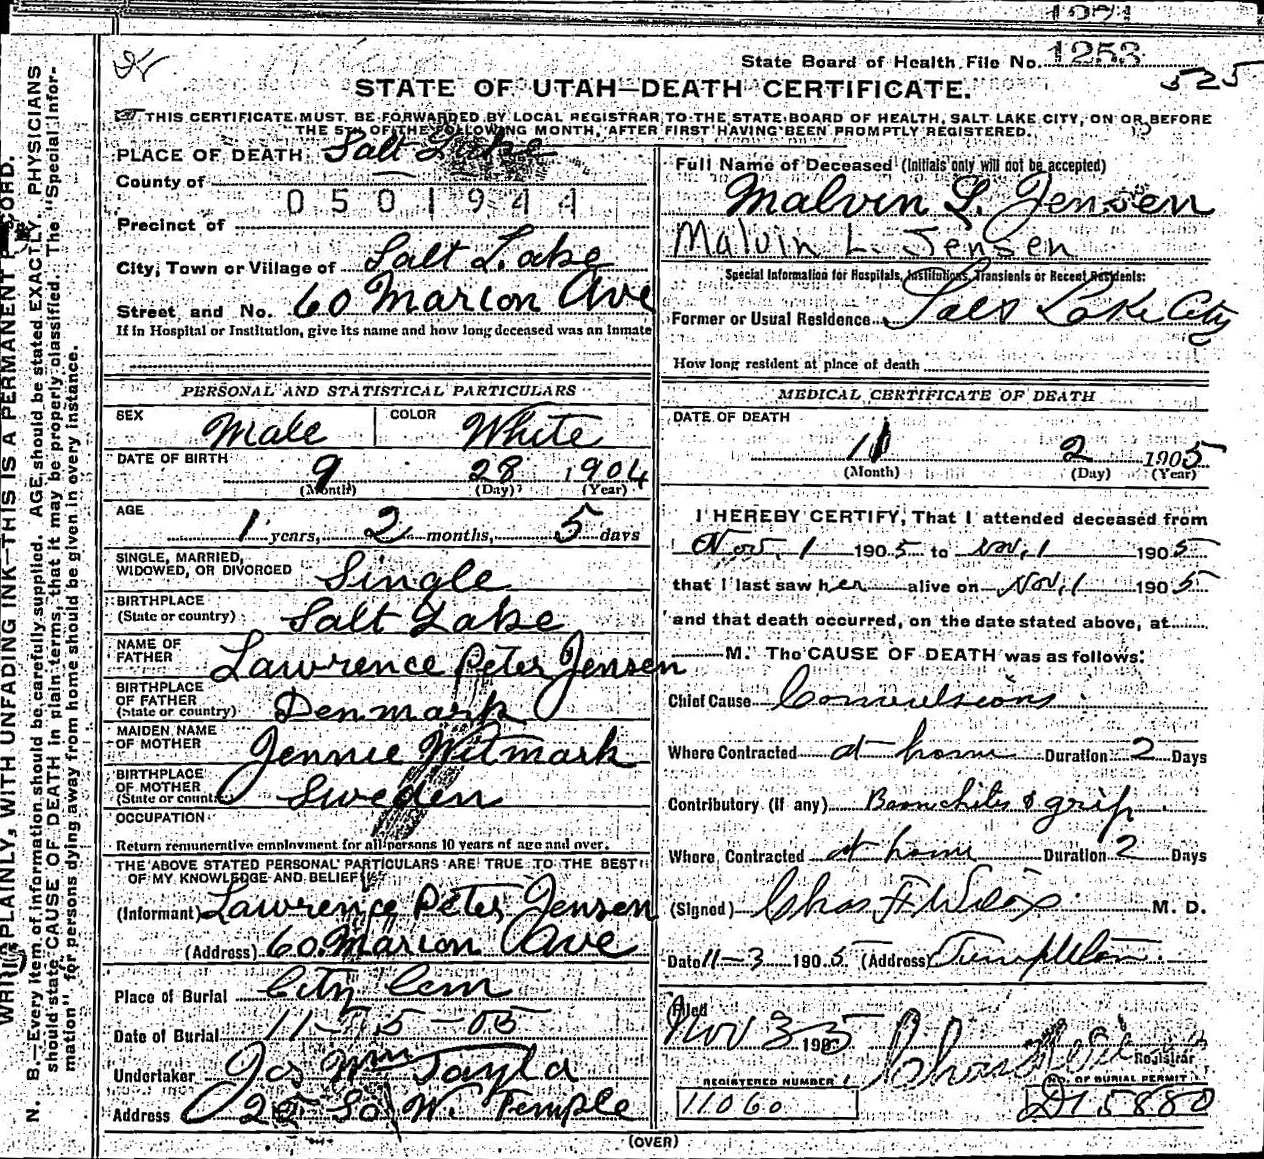 1253
State Board of Health File No. 1253
525
STATE OF UTAH—DEATH CERTIFICATE.
THIS CERTIFICATE MUST BE FORWARDED BY LOCAL REGISTRAR TO THE STATE BOARD OF HEALTH, SALT LAKE CITY, ON OR BEFORE
THE 5TH OF THE FOLLOWING MONTH, AFTER FIRST HAVING BEEN PROMPTLY REGISTERED.
PLACE OF DEATH Salt Lake
County of
0501944
Precinct of
City, Town or Village of Salt Lake
Street and No. 60 Marion Ave
If in Hospital or Institution, give its name and how long deceased was an inmate
PERSONAL AND STATISTICAL PARTICULARS
SEX Male COLOR White
DATE OF BIRTH 9 28 1904
(Month) (Day) (Year)
AGE 1 years, 2 months, 5 days
SINGLE, MARRIED,
WIDOWED, OR DIVORCED Single
BIRTHPLACE
(State or country) Salt Lake
NAME OF
FATHER Lawrence Peter Jensen
BIRTHPLACE
OF FATHER
(State or country) Denmark
MAIDEN NAME
OF MOTHER Jennie Witmark
BIRTHPLACE
OF MOTHER
(State or country) Sweden
OCCUPATION
Return remunerative employment for all persons 10 years of age and over.
THE ABOVE STATED PERSONAL PARTICULARS ARE TRUE TO THE BEST
OF MY KNOWLEDGE AND BELIEF
(Informant) Lawrence Peter Jensen
(Address) 60 Marion Ave
Place of Burial City Cem
Date of Burial 11-5-05
Undertaker Jos Wm Taylor
Address 25 So W. Temple
Full Name of Deceased (Initials only will not be accepted)
Malvin L. Jensen
Malvin L. Jensen
Special Information for Hospitals, Institutions, Transients or Recent Residents:
Former or Usual Residence Salt Lake City
How long resident at place of death
MEDICAL CERTIFICATE OF DEATH
DATE OF DEATH
11 2 1905
(Month) (Day) (Year)
I HEREBY CERTIFY, That I attended deceased from
Nov. 1 1905 to Nov. 1 1905
that I last saw her alive on Nov. 1 1905
and that death occurred, on the date stated above, at
M. The CAUSE OF DEATH was as follows:
Chief Cause Convulsions
Where Contracted at home Duration 2 Days
Contributory (if any) Bronchitis & grip
Where Contracted at home Duration 2 Days
(Signed) Chas F Wilcox M. D.
Date 11-3 1905 (Address) Templeton
Filed
Nov 3 1905 Registrar
REGISTERED NUMBER NO. OF BURIAL PERMIT
11060 D15880
(OVER)
N. B.—Every item of information should be carefully supplied. AGE should be stated EXACTLY. PHYSICIANS
should state CAUSE OF DEATH in plain terms, that it may be properly classified. The "Special Infor-
mation" for persons dying away from home should be given in every instance.
WRITE PLAINLY, WITH UNFADING INK—THIS IS A PERMANENT RECORD.